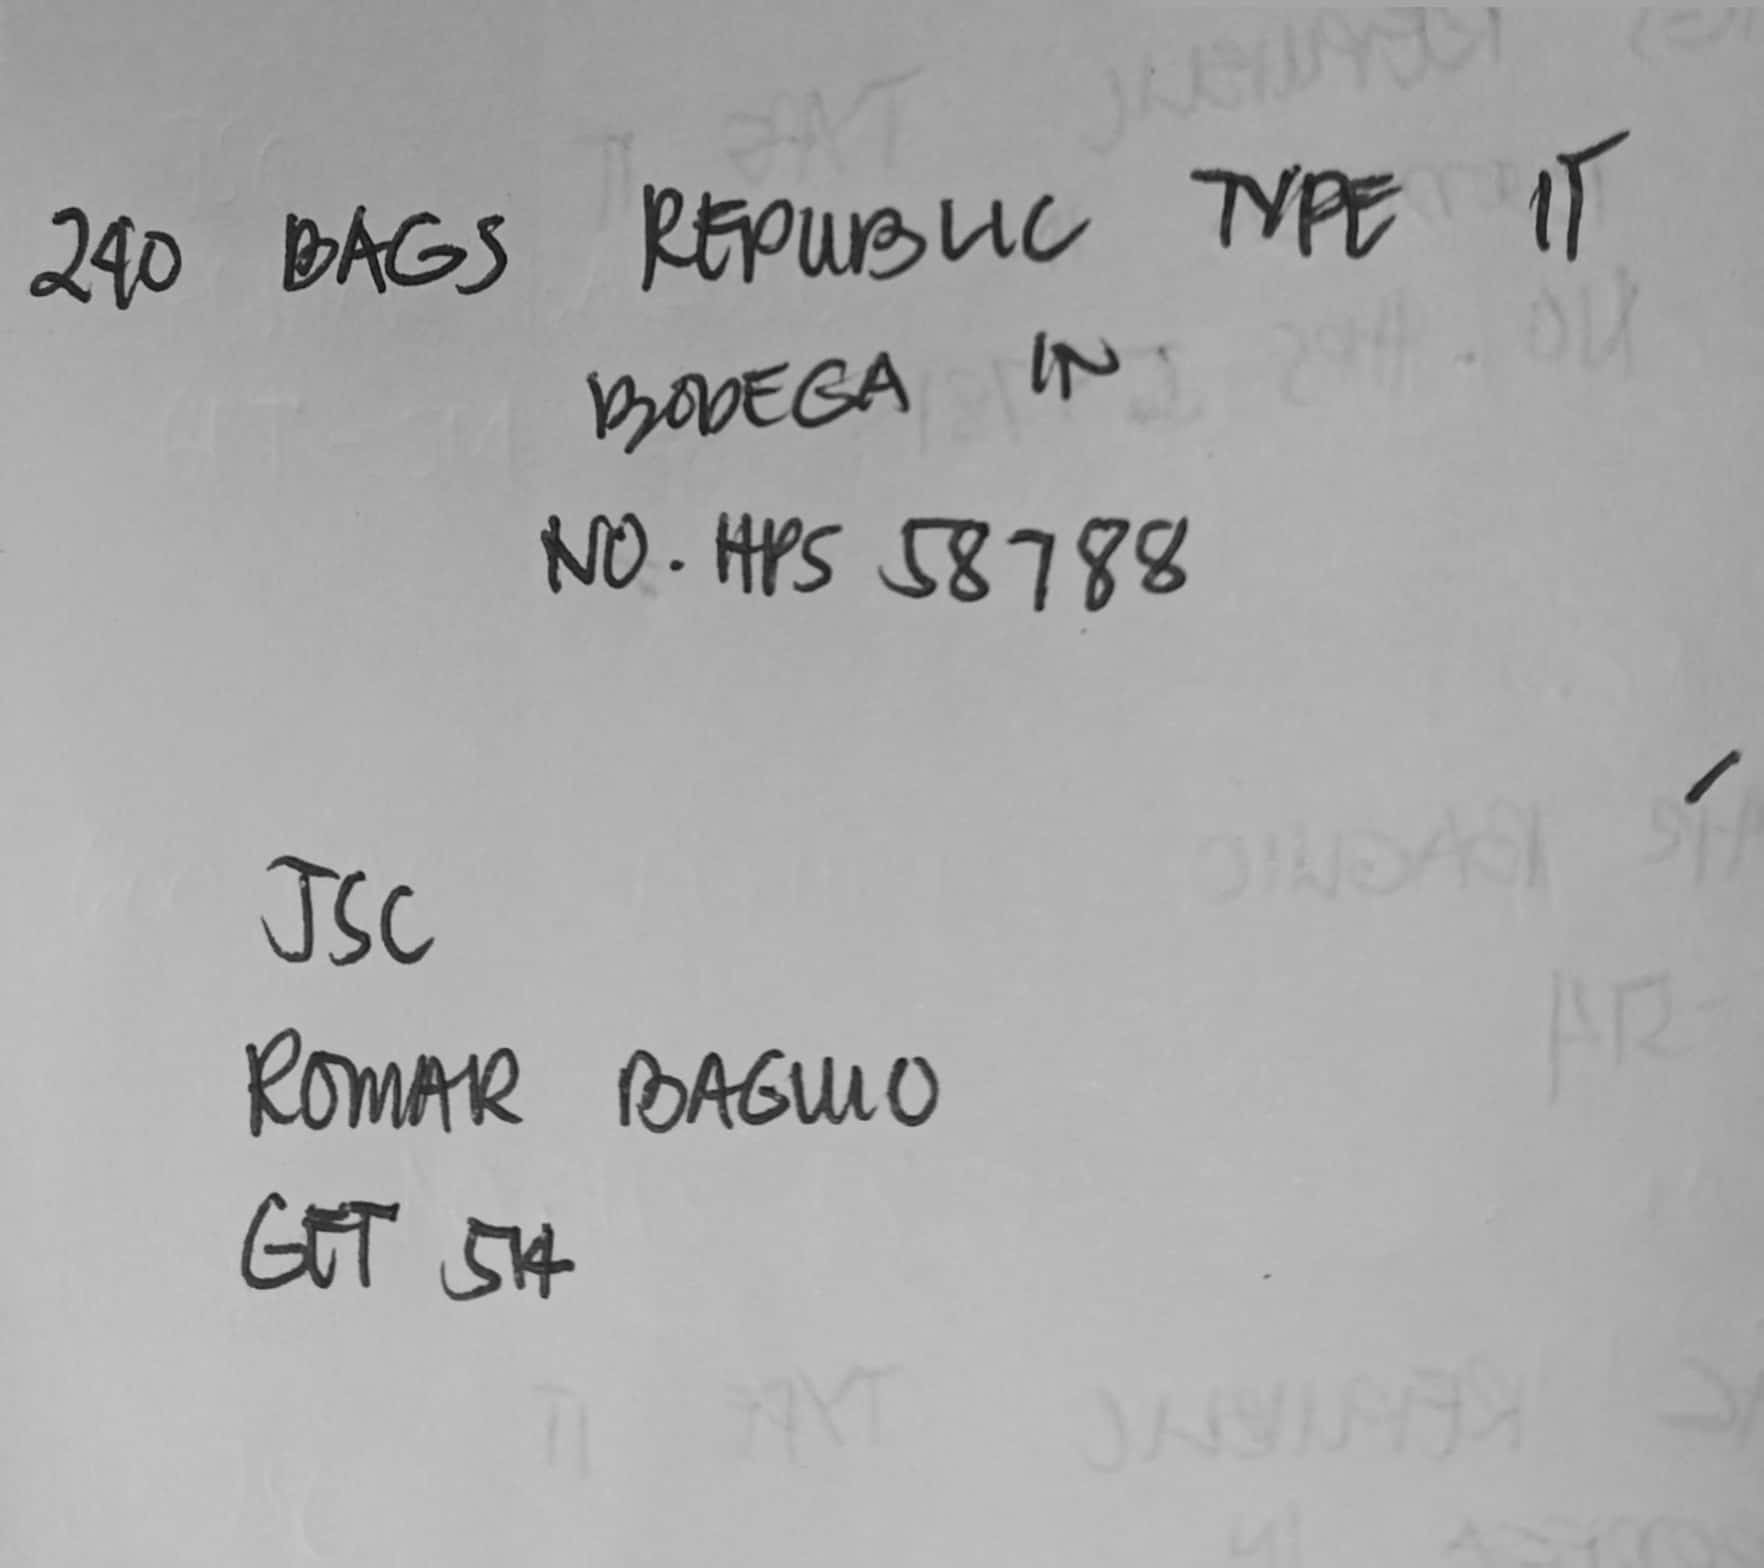 240 BAGS REPUBLIC TYPE 1T
BODEGA IN
NO. HPS 58788
JSC
ROMAR BAGUIO
GET 514